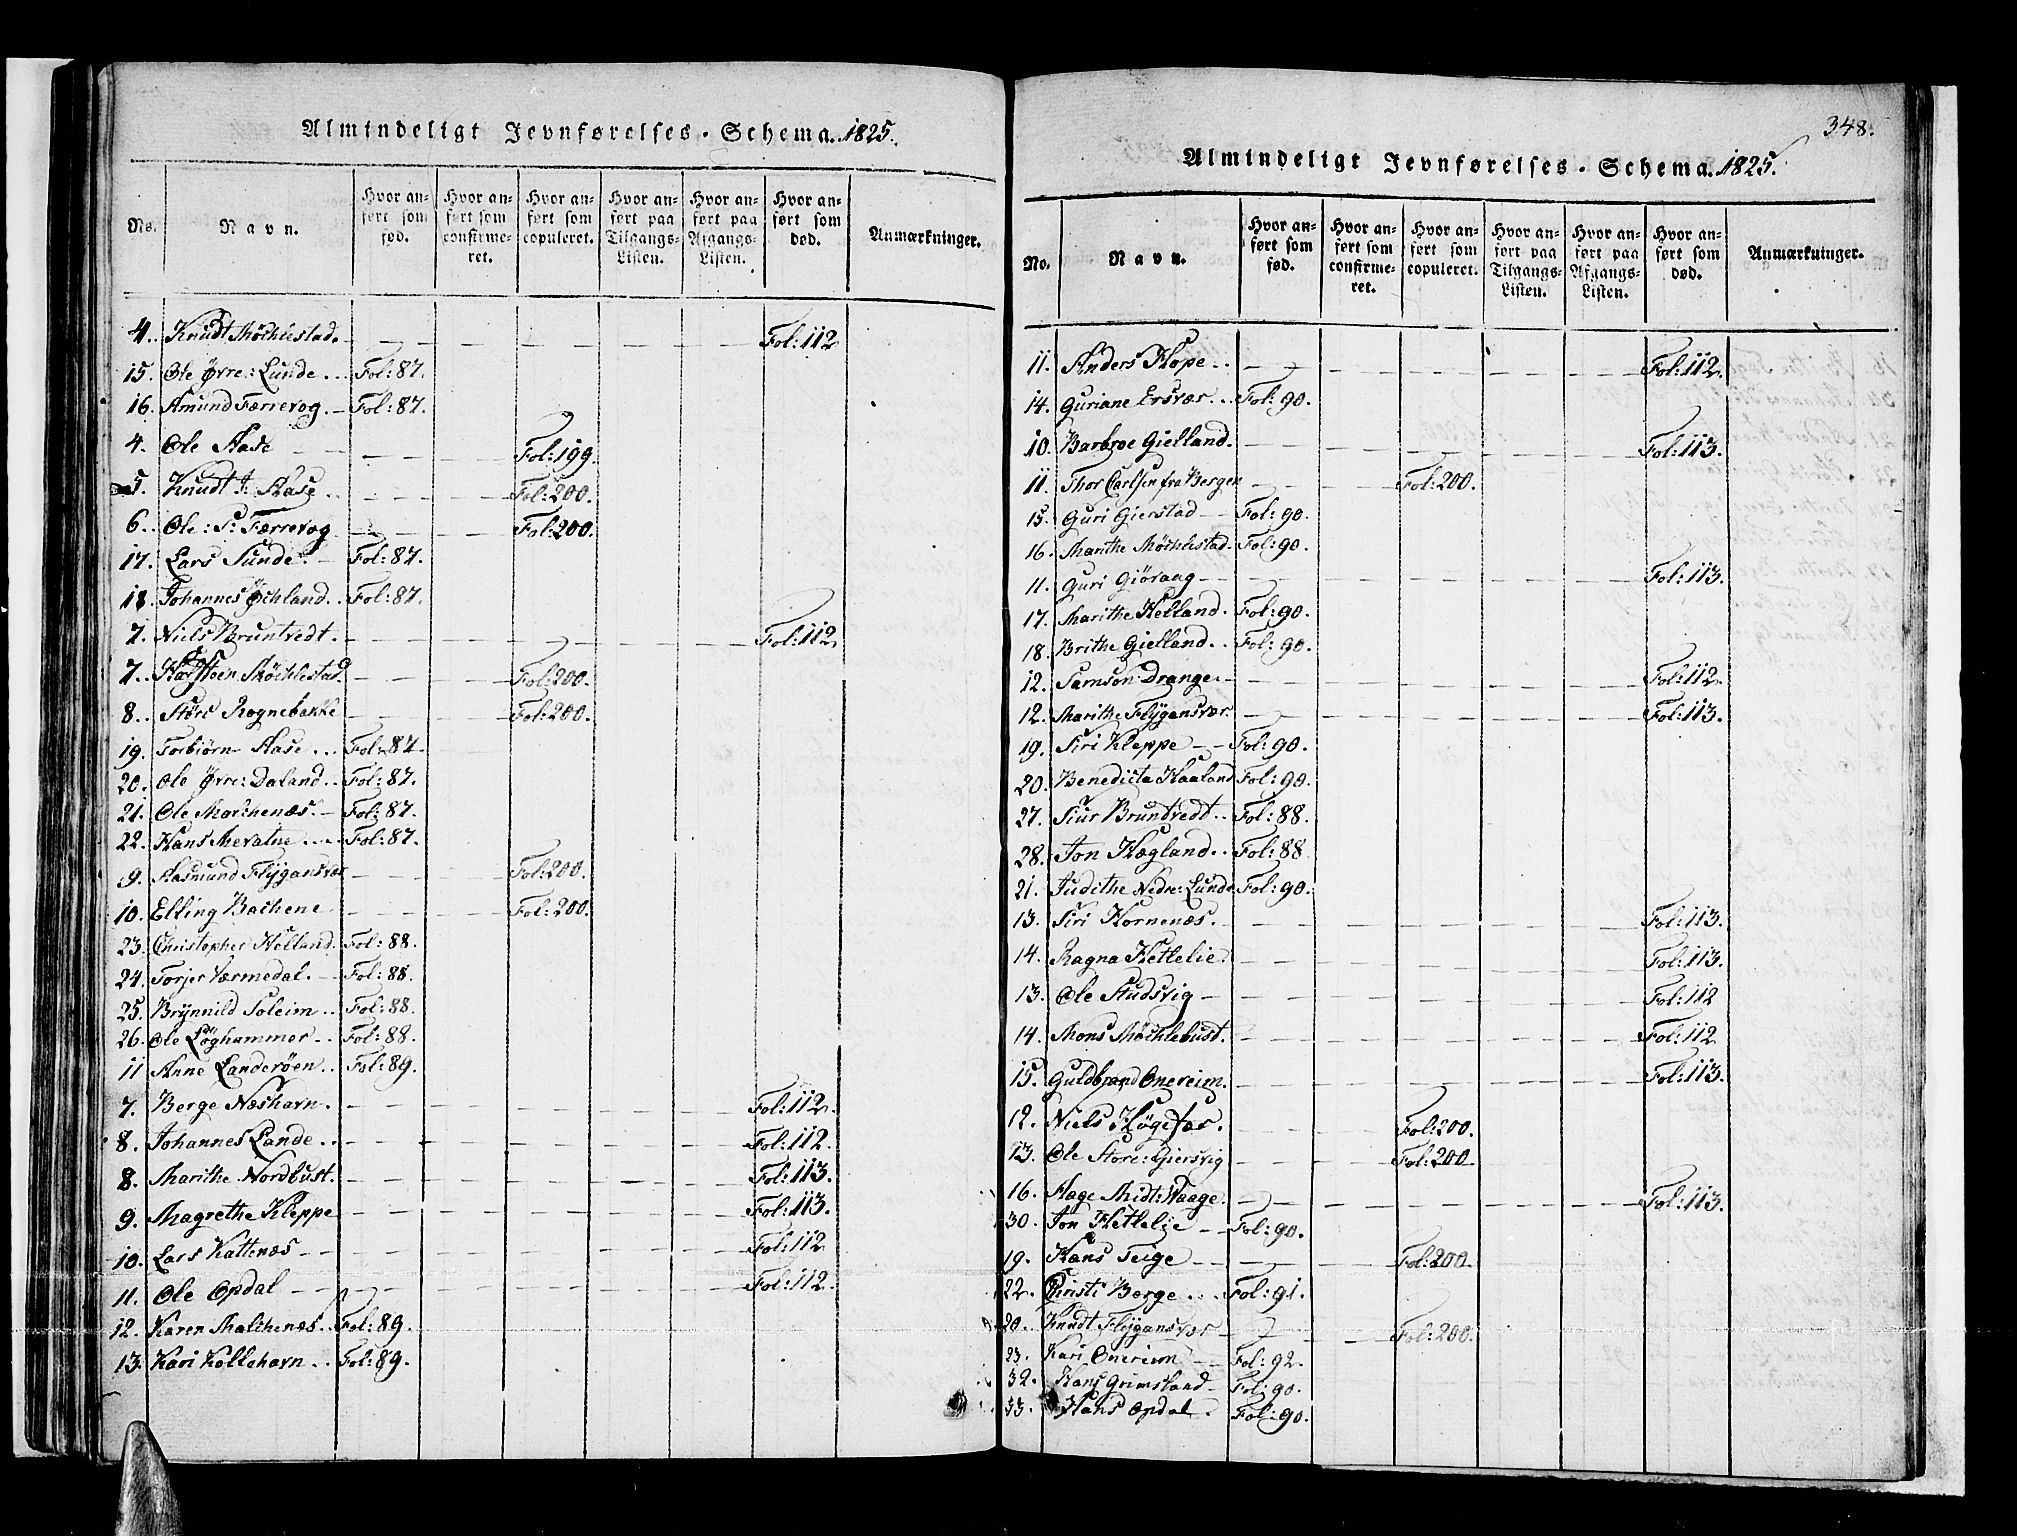 Almindeligt Jevnførelses-Schema 1825.
No. Navn. Hvor anført som fød. Hvor anført som confirmeret. Hvor anført som copuleret. Hvor anført paa Tilgangs-Listen. Hvor anført paa Afgangs-Listen. Hvor anført som død. Anmærkninger.
4. Knudt Möchlestad. Fol: 112
15. Ole Øvre: Lunde Fol: 87.
16. Amund Færrevog. Fol: 87.
4. Ole Aase Fol: 199.
5. Knudt J: Aase Fol: 200.
6. Ole: S: Færrevog Fol: 200.
17. Lars Sunde. Fol: 87.
18. Johannes Øchland. Fol: 87.
7. Niels Bruntvedt. Fol: 112
7. Möchlestad Fol: 200.
8. Rognebakke Fol: 200.
19. Torbiørn Aase Fol: 87.
20. Ole Øvre: Daland Fol: 87.
21. Ole Malchenæs. Fol: 87.
22. Hans Mevatne Fol: 87.
9. Aasmund Flÿgansvær Fol: 200.
10. Elling Bachene Fol: 200.
23. Christopher Helland. Fol: 88.
24. Torjer Værmedal. Fol: 88.
25. Brÿnnild Soleim Fol: 88.
26. Ole Løghammer Fol: 88.
11 Anne Landerøen Fol: 89.
7. Berge Næshavn. Fol: 112.
8. Johannes Lande Fol: 112.
8. Marithe Nordbust. Fol: 113.
9. Magrethe Kleppe Fol: 113.
10. Lars Kattenæs Fol: 112
11. Ole Opdal Fol: 112.
12. Karen Malchenæs Fol: 89.
13. Kari Kollehavn Fol: 89.
348.
Almindeligt Jevnførelses-Schema 1825.
No. Navn. Hvor anført som fød. Hvor anført som confirmeret. Hvor anført som copuleret. Hvor anført paa Tilgangs-Listen. Hvor anført paa Afgangs-Listen. Hvor anført som død. Anmærkninger.
11. Anders Hope Fol: 112.
14. Guriane Ersvær Fol: 90.
10. Barbroe Gielland. Fol: 113.
11. Thor Carlsen fra Bergen Fol: 200.
15. Guri Gierstad Fol: 90.
16. Marithe Möchlestad. Fol: 90.
11. Guri Giörang Fol: 113.
17. Marithe Helland. Fol: 90.
18. Brithe Gielland Fol: 90.
12. Samson Drange Fol: 112.
12. Marithe Flÿgansvær. Fol: 113.
19. Siri Kleppe Fol: 90.
20. Benedicta Haaland Fol: 90.
27. Siur Bruntvedt Fol: 88.
28. Jon Hægland Fol: 88
21. Judithe Nedre: Lunde Fol: 90.
13. Siri Hornenæs. Fol: 113.
14. Ragna Hetlelie. Fol: 113.
13. Ole Studsvig Fol: 112
14. Mons Möchlebust. Fol: 112
15. Guldbrand Onereim. Fol: 113.
12. Niels Høgefær. Fol: 200.
13. Ole Store: Giersvig Fol: 200.
16. Aage Midt: Waage Fol: 113.
30. Jon Hetlelie Fol: 90.
19. Hans Teige Fol: 200.
22. Christi Berge Fol: 91.
20. Knudt Flÿgansvær Fol: 200.
23. Kari Onereim Fol: 92.
32. Hans Grimsland Fol: 90.
33. Hans Opdal. Fol: 90.